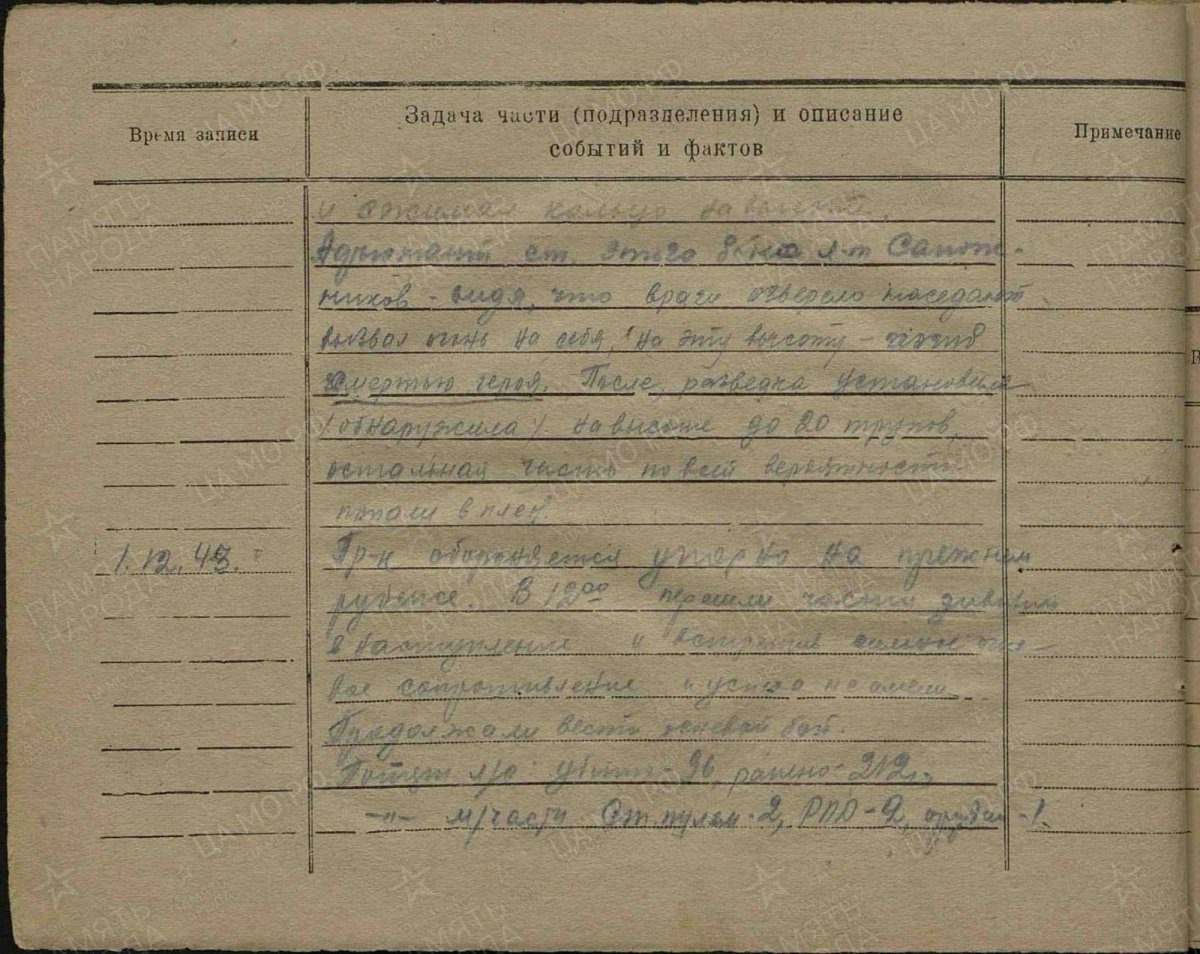 Время записи
Задача части (подразделения) и описание
событий и фактов
Примечание
и сжимая кольцо на высоте.
Адъютант ст. этого б-на л-т Сапож-
ников - видя, что враги озверело наседают
вызвал огонь на себя, на эту высоту - погиб
смертью героя. После разведка установила
(обнаружила) на высоте до 20 трупов,
остальная часть по всей вероятности
попали в плен.
1.12.43. Пр-к обороняется упорно на прежнем
рубеже. В 12 00 перешли части дивизии
в наступление и встретив сильное огне-
вое сопротивление успеха не имели
Продолжали вести огневой бой.
Потери л/с убито - 36, ранено 212,
-"- м/части Ст. пулем - 2, РПД - 2, орудий - 1.